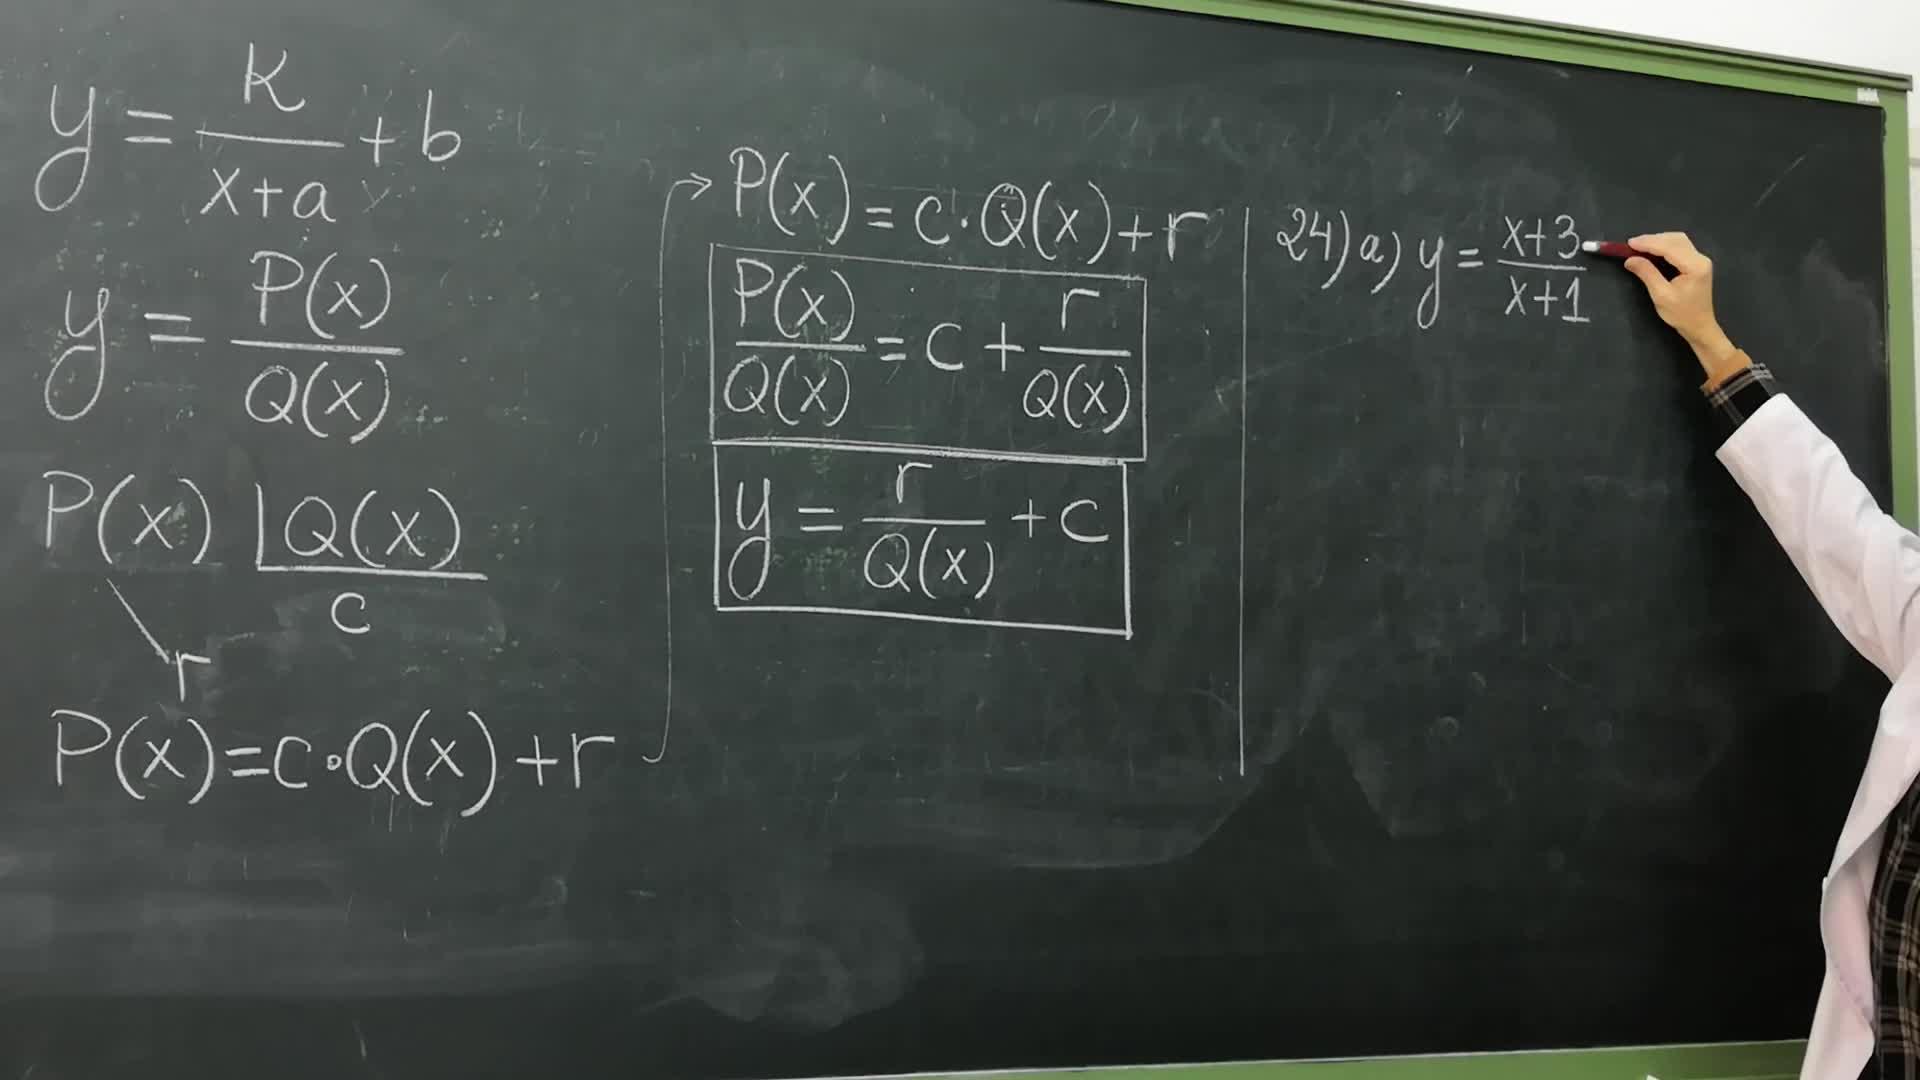 y = K/(x+a) + b
y = P(x)/Q(x)
P(x) |Q(x)
c
r
P(x)=c·Q(x)+r
P(x)=c·Q(x)+r
P(x)/Q(x) = c + r/Q(x)
y = r/Q(x) + c
24) a) y = (x+3)/(x+1)